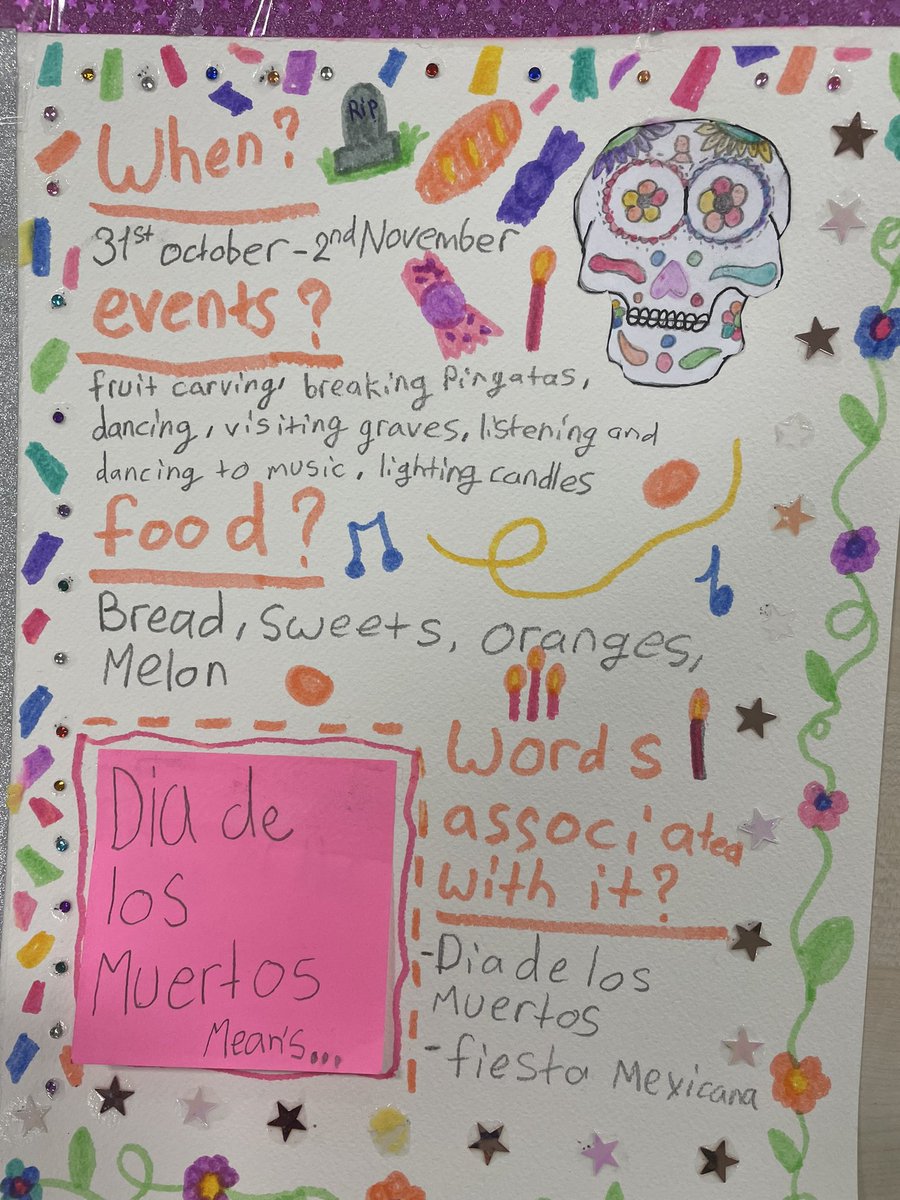 When?
RIP
31st october - 2nd November
events?
fruit carving, breaking Pingatas,
dancing, visiting graves, listening and
dancing to music, lighting candles
food?
Bread, Sweets, oranges,
Melon
Dia de
los
Muertos
Mean's...
Words
associated
with it?
-Dia de los
Muertos
-fiesta Mexicana